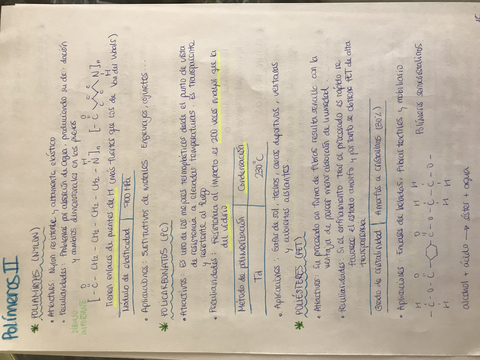 Polímeros II
* POLIAMIDAS (NYLON)
• Atractivos: Muy resistente y altamente elástico
• Peculiaridades: Problemas por absorción de agua, produciendo su
y cambios dimensionales en las piezas
Tienen enlaces de puentes de H (más fuertes que los de Van der Waals)
Módulo de elasticidad
• Aplicaciones: Sustitutivos de metales. Engranajes, cojinetes...
* POLICARBONATOS (PC)
• Atractivos: Es uno de los mejores termoplásticos desde el punto de vista
de resistencia a elevadas temperaturas. Es transparente
y resistente al fuego
• Peculiaridades: Resistencia al impacto es 200 veces mayor que la
del vidrio
Método de polimerización Condensación
Td 230°C
• Aplicaciones: Gafas de sol, techos, cascos deportivos, ventanas
y cubiertas aislantes
* POLIÉSTERES (PET)
• Atractivos: Su procesado en forma de fibras resulta sencillo con la
ventaja de poseer menor absorción de humedad
• Peculiaridades: Si el enfriamiento tras el procesado es rápido se
favorece el estado amorfo y por tanto se obtiene PET de alta
transparencia
Grado de cristalinidad Amorfos a cristalinos (30%)
• Aplicaciones: Envases de bebidas, fibras textiles y mobiliario
Polímeros semicristalinos
alcohol + ácido → éster + agua